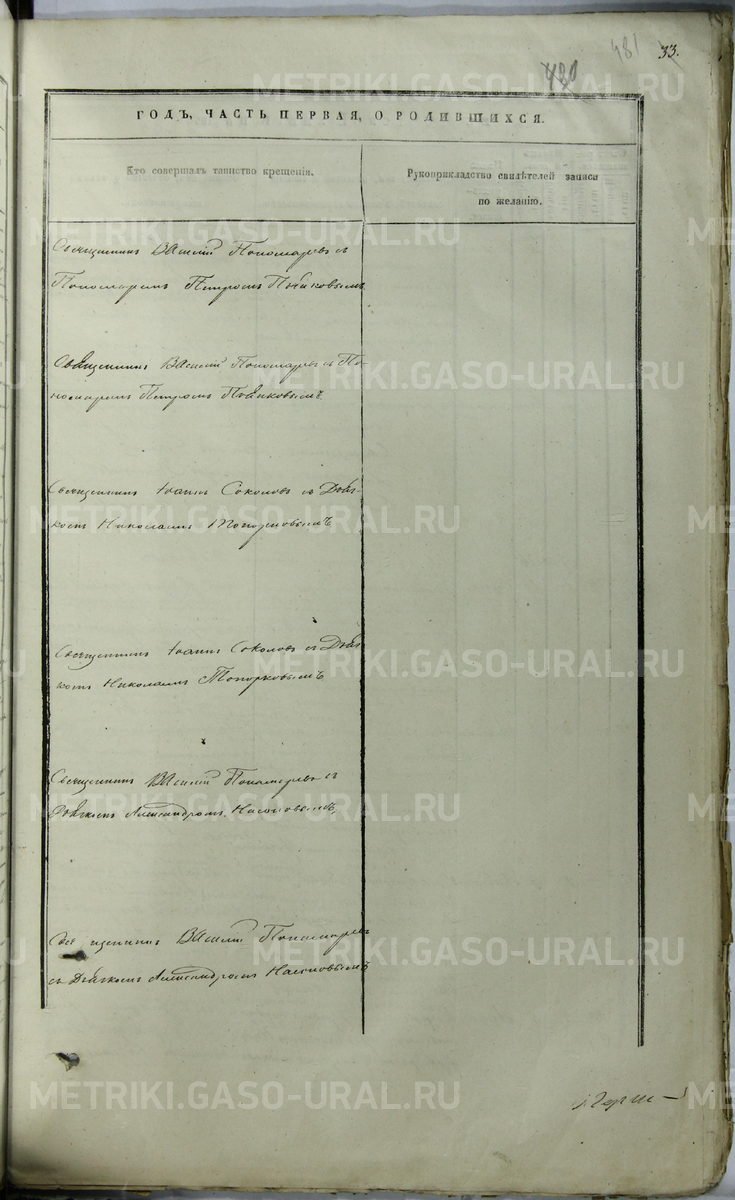 481 33.
480
ГОДЪ, ЧАСТЬ ПЕРВАЯ, О РОДИВШИХСЯ.
Кто совершалъ таинство крещенія.
Рукоприкладство свидѣтелей записи
по желанію.
Священникъ Василій Пономаревъ съ
Пономаремъ Петромъ
Священникъ Василій Пономаревъ съ По-
номаремъ Петромъ
Священникъ Іоаннъ Соколовъ съ Дьяч-
комъ Николаемъ Топорковымъ
Священникъ Іоаннъ Соколовъ съ Дьяч-
комъ Николаемъ Топорковымъ
Священникъ Василій Пономаревъ съ
Дьячкомъ Александромъ Насоновымъ,
Священникъ Василій Пономаревъ
съ Дьячкомъ Александромъ Насоновымъ
METRIKI.GASO-URAL.RU